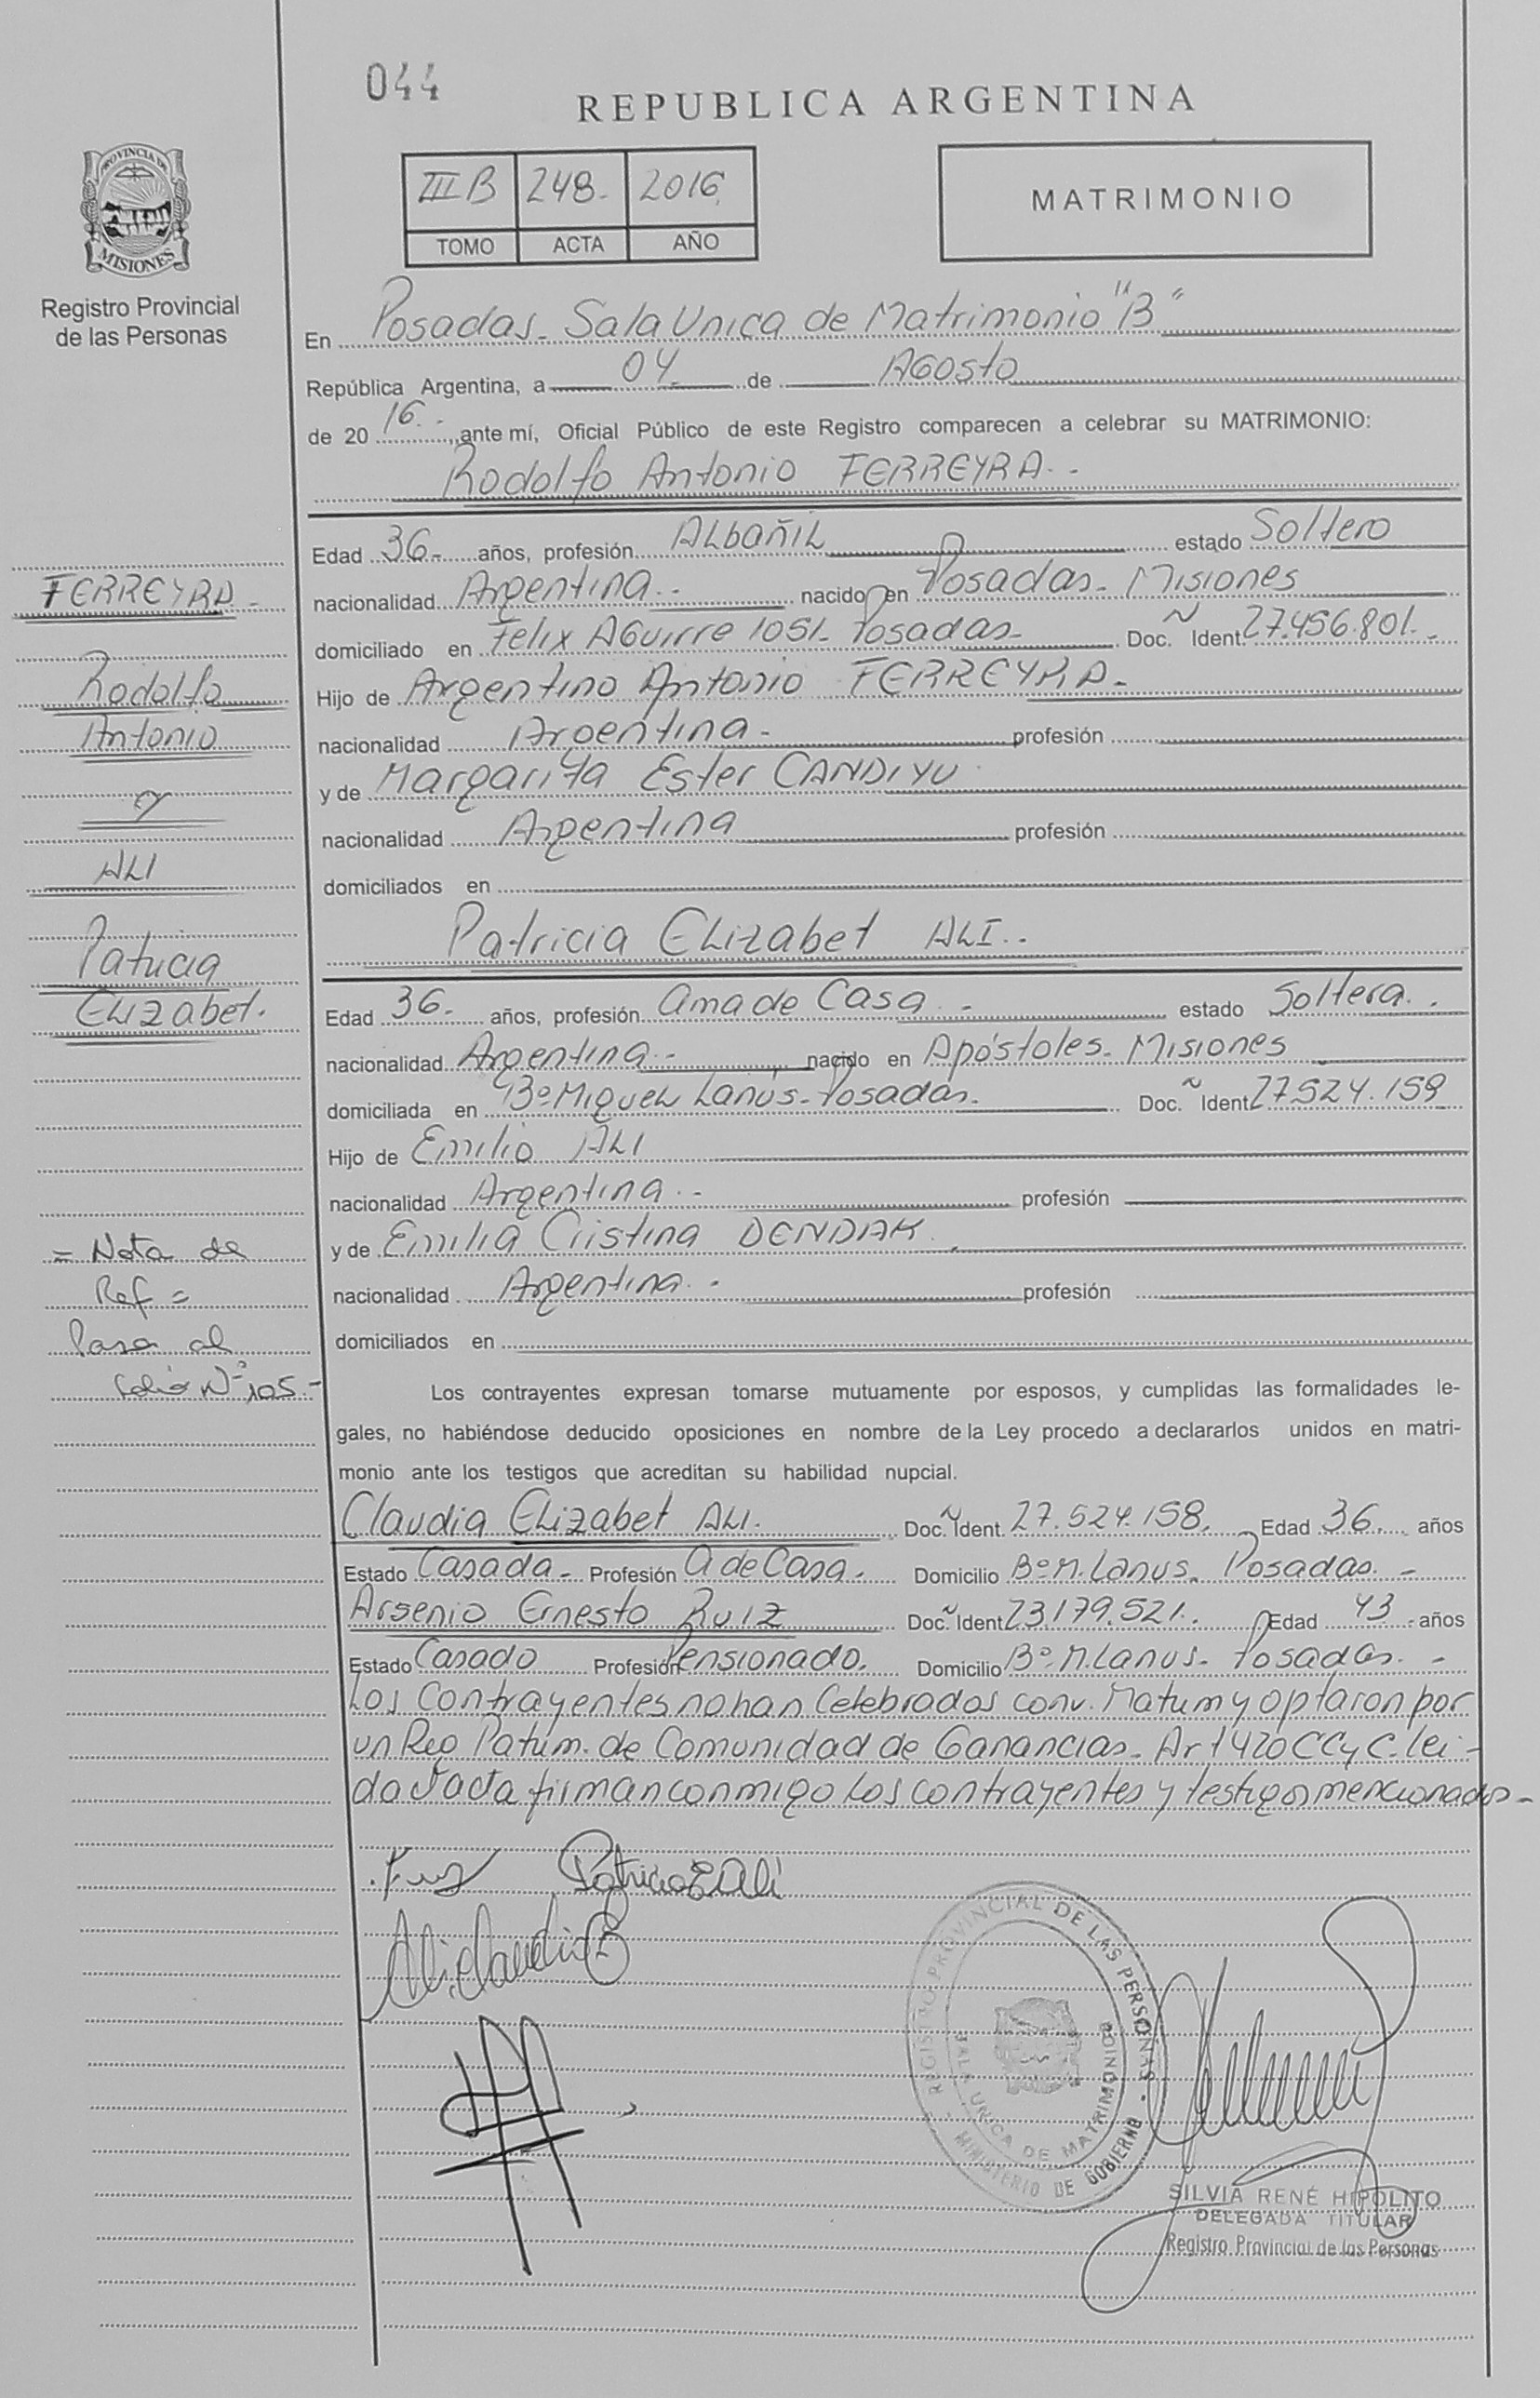 044
REPUBLICA ARGENTINA
PROVINCIA DE
MISIONES
Registro Provincial
de las Personas
III B 248- 2016
TOMO ACTA AÑO
MATRIMONIO
En Posadas- Sala Unica de Matrimonio "B"
República Argentina, a 04 de Agosto
de 20 16.- ante mí, Oficial Público de este Registro comparecen a celebrar su MATRIMONIO:
Rodolfo Antonio FERREYRA.-
Edad 36- años, profesión Albañil estado Soltero
nacionalidad Argentina.- nacido en Posadas- Misiones
domiciliado en Felix Aguirre 1051- Posadas- Doc. Ñ Ident. 27.456.801.-
Hijo de Argentino Antonio FERREYRA-
nacionalidad Argentina- profesión
y de Margarita Ester CANDIYU
nacionalidad Argentina profesión
domiciliados en
FERREYRA-
Rodolfo
Antonio
y
ALI
Patricia
Elizabet.
Patricia Elizabet ALI.-
Edad 36- años, profesión ama de Casa.- estado Soltera.-
nacionalidad Argentina.- nacido en Apóstoles- Misiones
domiciliada en Bº Miguel Lanús- Posadas- Doc. Ñ Ident 27.524.159
Hijo de Emilio ALI
nacionalidad Argentina.- profesión
y de Emilia Cristina DENDAK.
nacionalidad Argentina.- profesión
domiciliados en
= Nota de
Ref =
Pasa al
folio Nº 105.-
Los contrayentes expresan tomarse mutuamente por esposos, y cumplidas las formalidades le-
gales, no habiéndose deducido oposiciones en nombre de la Ley procedo a declararlos unidos en matri-
monio ante los testigos que acreditan su habilidad nupcial.
Claudia Elizabet ALI. Doc. Ñ Ident 27.524.158. Edad 36. años
Estado Casada- Profesión a de Casa. Domicilio Bº M. Lanus- Posadas.-
Arsenio Ernesto Ruiz Doc. Ñ Ident 23.179.521. Edad 43 años
Estado Casado Profesión Pensionado. Domicilio Bº M. Lanus- Posadas.-
Los Contrayentes no han Celebrados conv. Matrim y optaron por
un Reg Patrim. de Comunidad de Ganancias- Art 420 CCyC. lei-
da acta firman conmigo los contrayentes y testigos mencionados-
Patricia E Ali
Ali Claudia E
REGISTRO PROVINCIAL DE LAS PERSONAS
SALA UNICA DE MATRIMONIOS
MINISTERIO DE GOBIERNO
SILVIA RENÉ HIPOLITO
DELEGADA TITULAR
Registro Provincial de las Personas